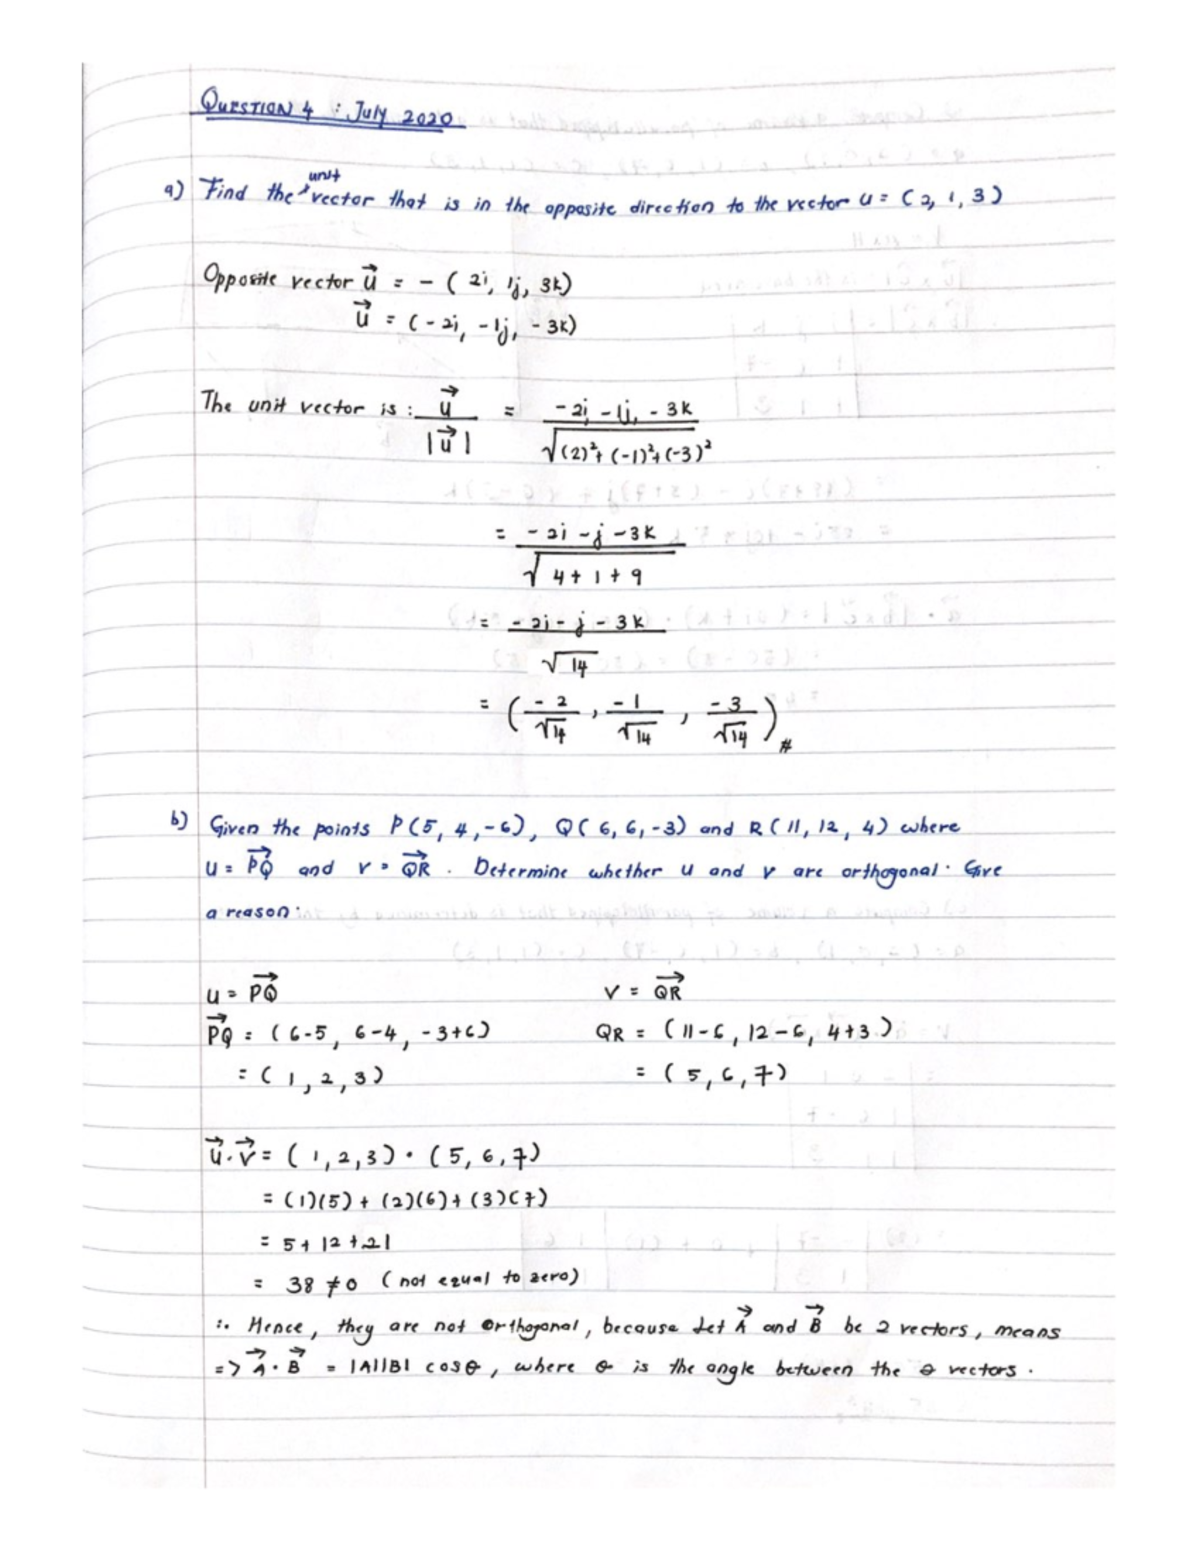 QUESTION 4 : July 2020
unit
a) Find the vector that is in the opposite direction to the vector u = (2, 1, 3)
Opposite vector u⃗ = - ( 2i, 1j, 3k)
u⃗ = (-2i, -1j, -3k)
The unit vector is : u⃗ / |u⃗| = -2i, -1j, -3k / √(2)²+(-1)²+(-3)²
= -2i -j -3k / √4+1+9
= -2i - j - 3k / √14
= (-2/√14 , -1/√14 , -3/√14)#
b) Given the points P(5, 4, -6), Q(6, 6, -3) and R(11, 12, 4) where
u = PQ⃗ and v = QR⃗. Determine whether u and v are orthogonal. Give
a reason.
u = PQ⃗ v = QR⃗
PQ⃗ = (6-5, 6-4, -3+6) QR = (11-6, 12-6, 4+3)
= (1, 2, 3) = (5, 6, 7)
u⃗.v⃗ = (1, 2, 3) • (5, 6, 7)
= (1)(5) + (2)(6) + (3)(7)
= 5+12+21
= 38 ≠ 0 (not equal to zero)
∴ Hence, they are not orthogonal, because let A⃗ and B⃗ be 2 vectors, means
=> A⃗ • B⃗ = |A||B| cosθ, where θ is the angle between the θ vectors.